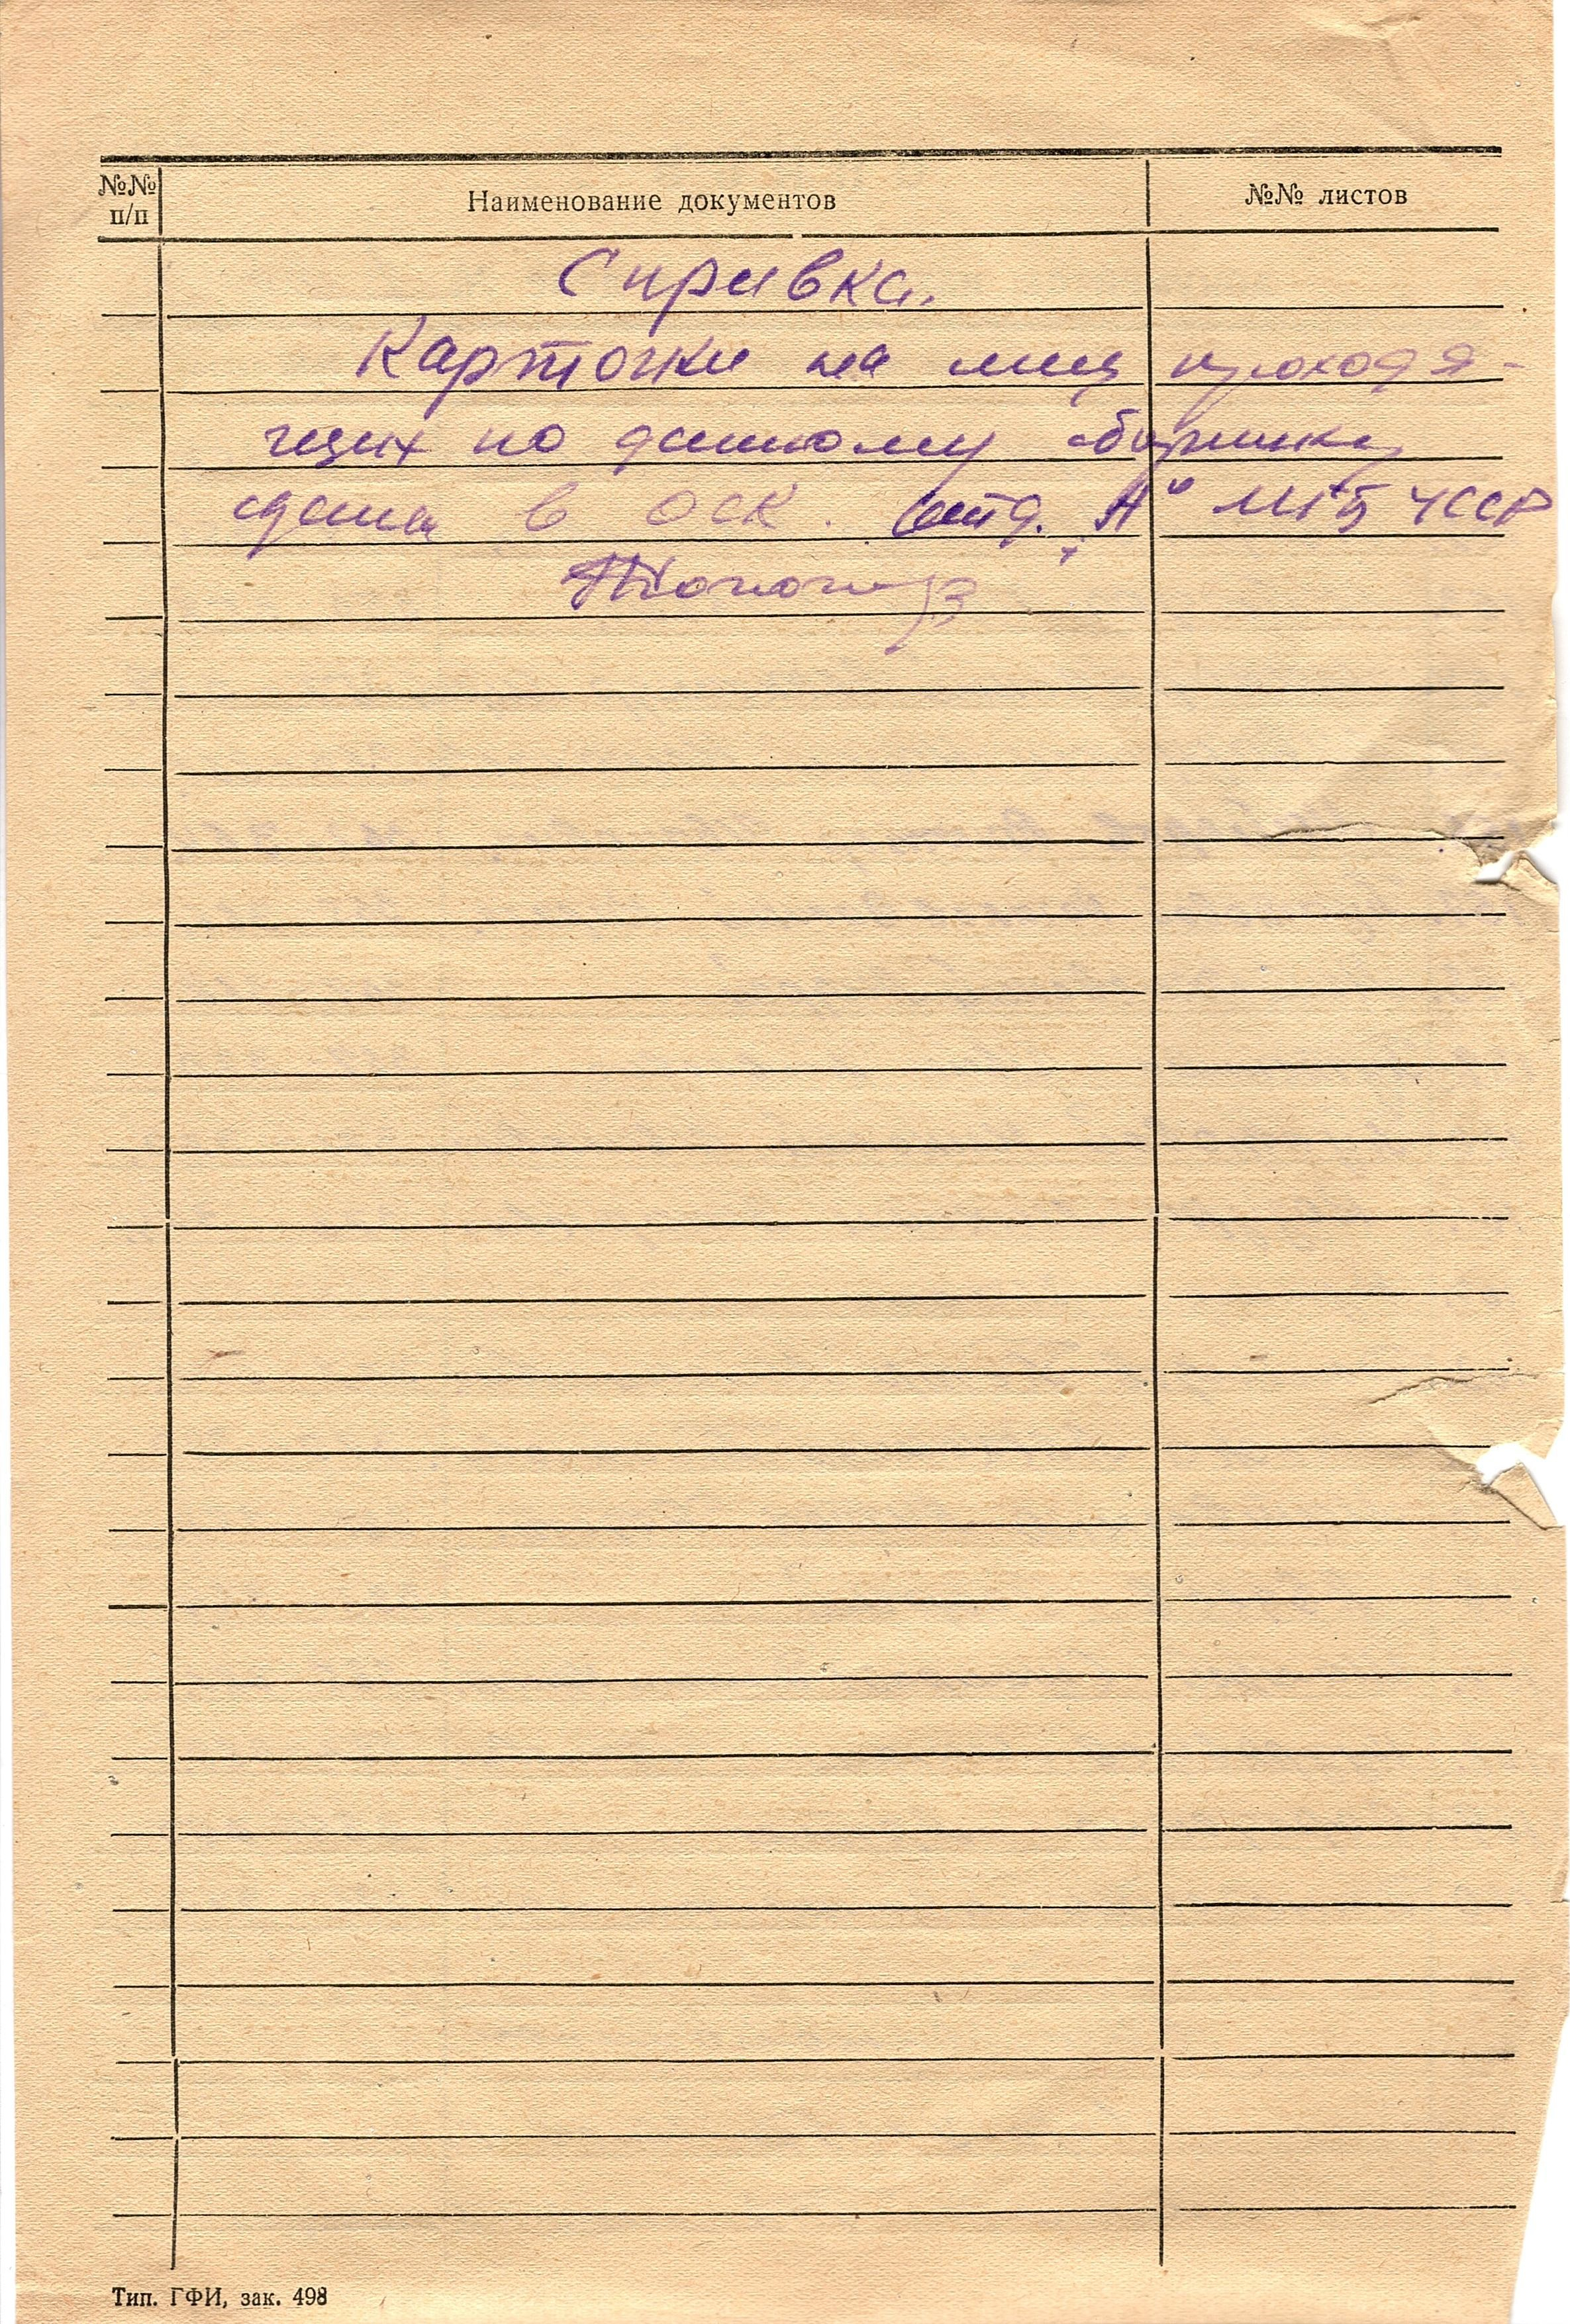 №№ п/п
Наименование документов
№№ листов
Справка.
Карточки на лиц проходя-
щих по данному сборнику
сдана в ОСК. отд. "А" МГБ УССР
Тип. ГФИ, зак. 498